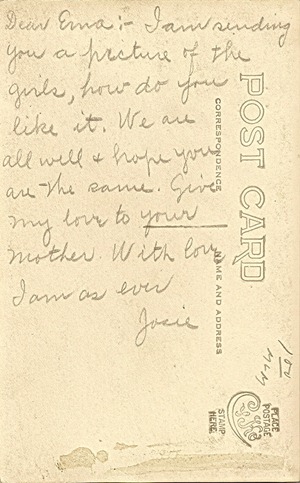 Dear Erna:- I am sending
you a picture of the
girls, how do you
like it. We are
all well & hope you
are the same. Give
my love to your
mother. With love
I am as ever
Josie
POST CARD
CORRESPONDENCE
NAME AND ADDRESS
PLACE
POSTAGE
STAMP
HERE
100